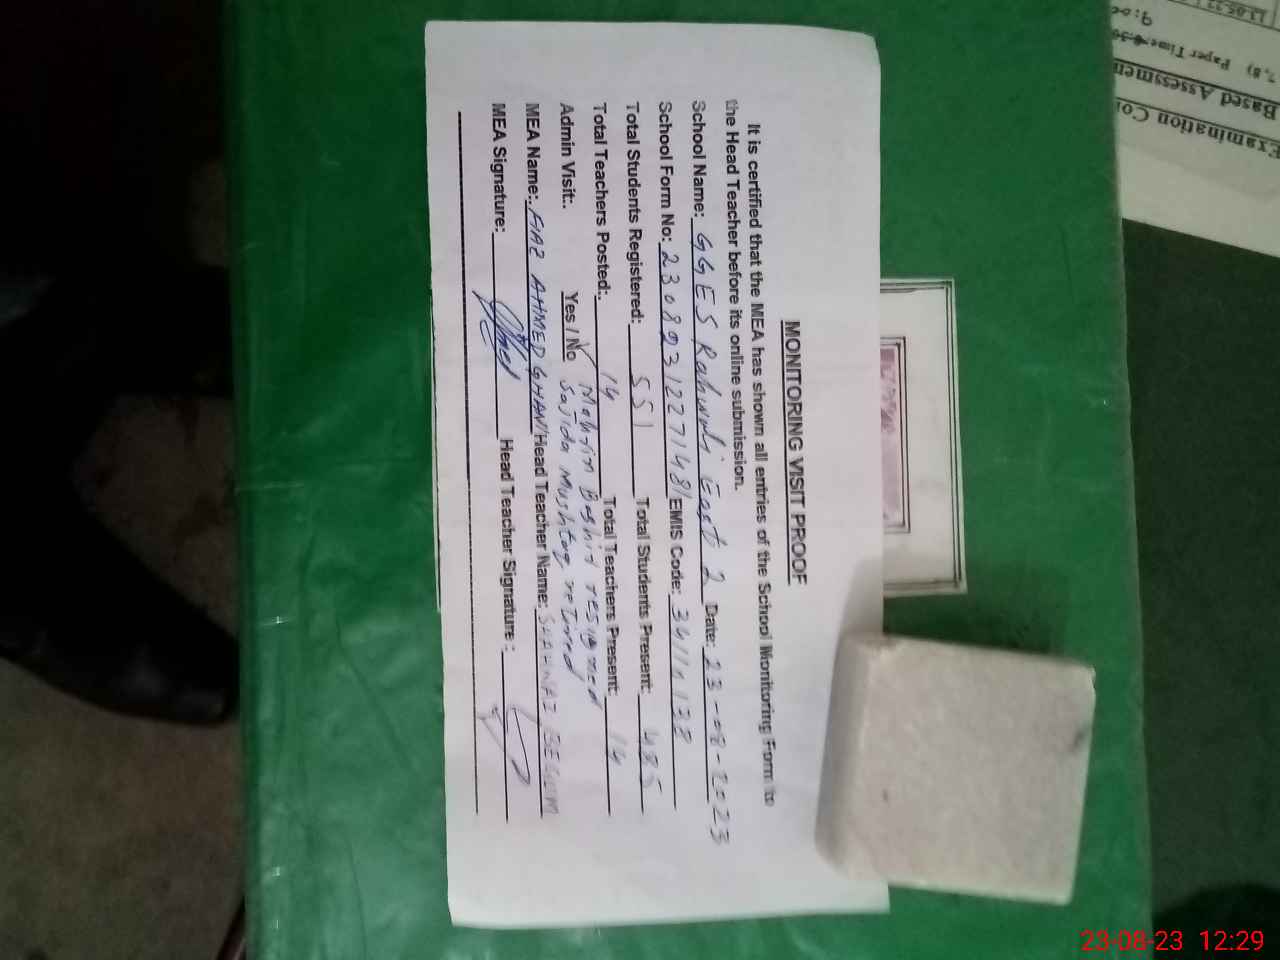 MONITORING VISIT PROOF
It is certified that the MEA has shown all entries of the School Monitoring Form to
the Head Teacher before its online submission.
School Name: GGES Rahwali East 2 Date: 23-08-2023
School Form No: 23082312271481 EMIS Code: 34110138
Total Students Registered: 551 Total Students Present: 485
Total Teachers Posted:. 14 Total Teachers Present: 14
Mahrin Bashir resigned
Admin Visit:. Yes / No Sajida Mushtaq retired
MEA Name:. FIAZ AHMED GHANI Head Teacher Name: SHAHNAZ BEGUM
MEA Signature: Head Teacher Signature :
Examination Co
Based Assessmen
7,8) Paper Time:
9:00
23-08-23 12:29